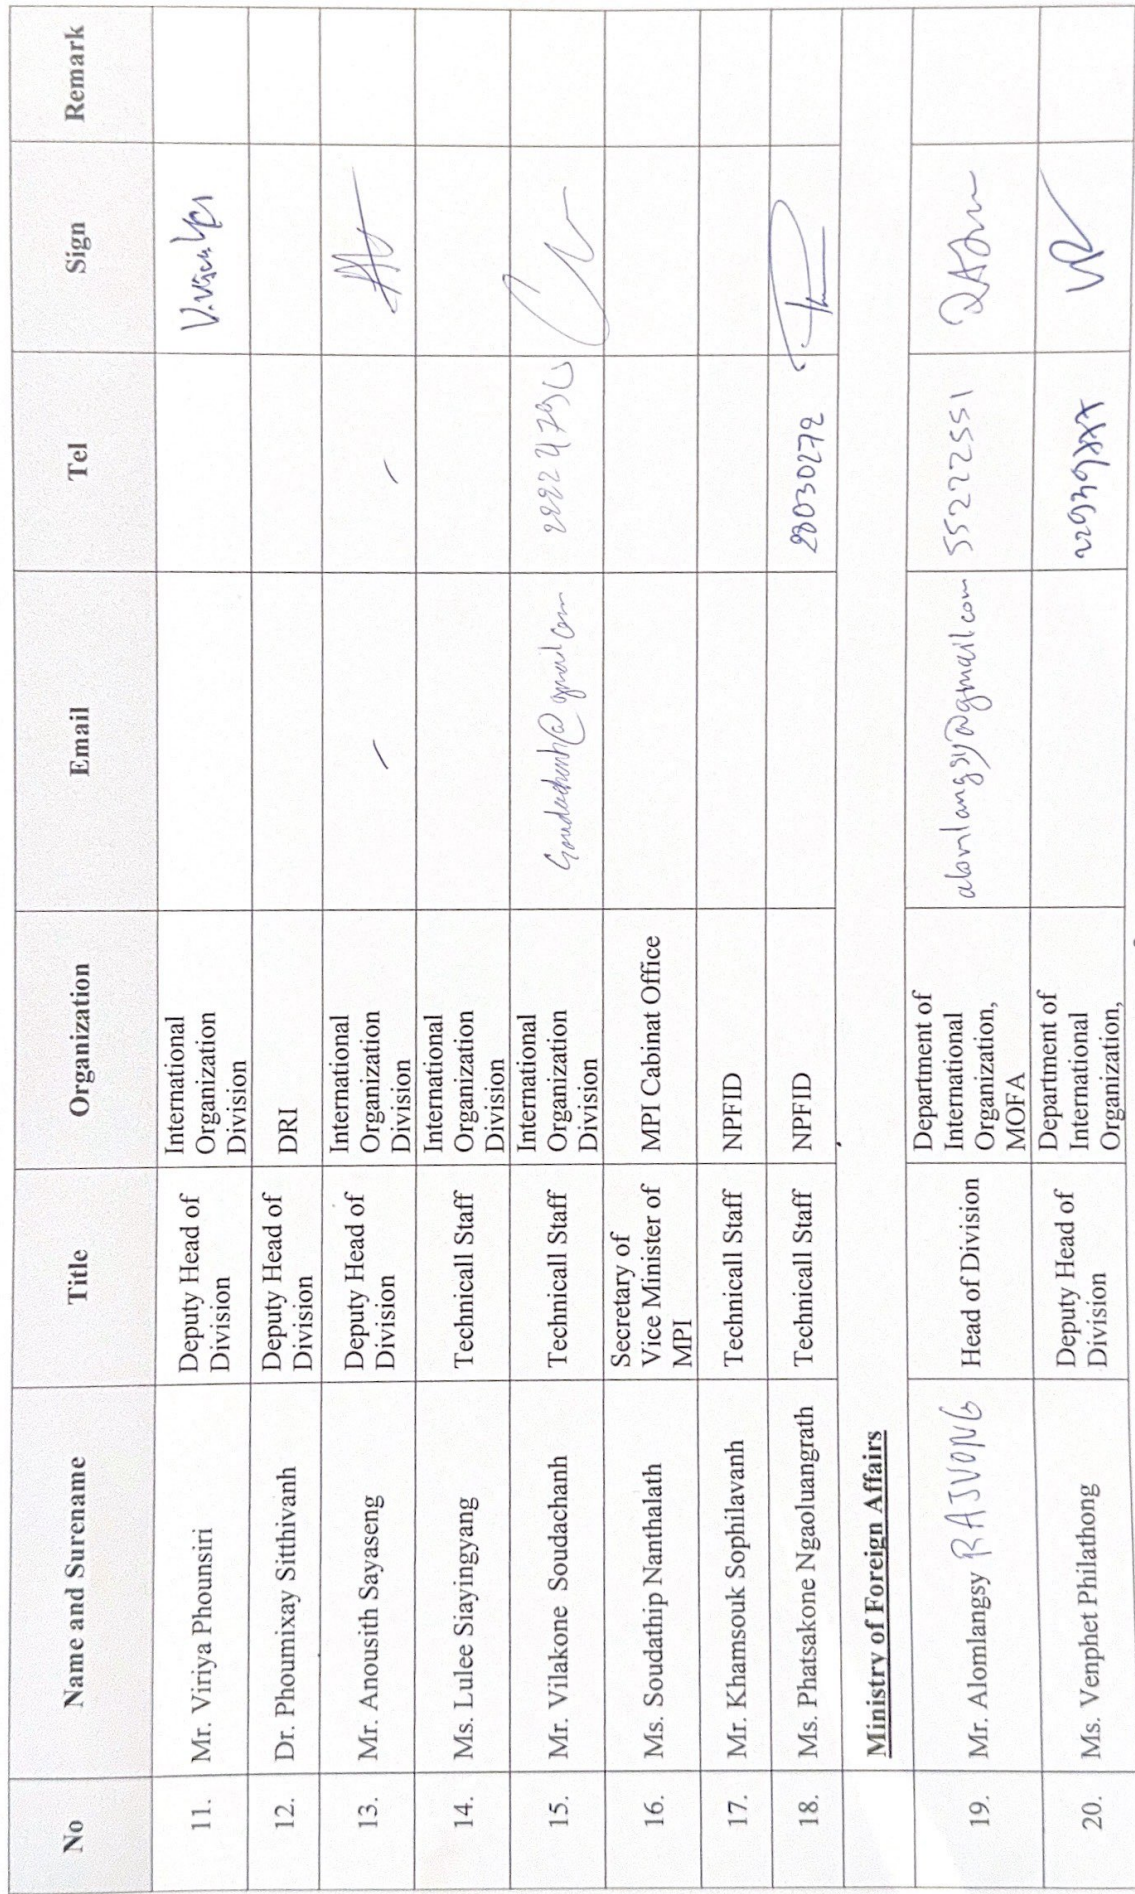 No Name and Surename Title Organization Email Tel Sign Remark
11. Mr. Viriya Phounsiri Deputy Head of Division International Organization Division
12. Dr. Phoumixay Sitthivanh Deputy Head of Division DRI
13. Mr. Anousith Sayaseng Deputy Head of Division International Organization Division
14. Ms. Lulee Siayingyang Technicall Staff International Organization Division
15. Mr. Vilakone Soudachanh Technicall Staff International Organization Division
16. Ms. Soudathip Nanthalath Secretary of Vice Minister of MPI MPI Cabinat Office
17. Mr. Khamsouk Sophilavanh Technicall Staff NPFID
18. Ms. Phatsakone Ngaoluangrath Technicall Staff NPFID
Ministry of Foreign Affairs
19. Mr. Alomlangsy RAJVONG Head of Division Department of International Organization, MOFA alomlangsy@gmail.com 55222551
20. Ms. Venphet Philathong Deputy Head of Division Department of International Organization,